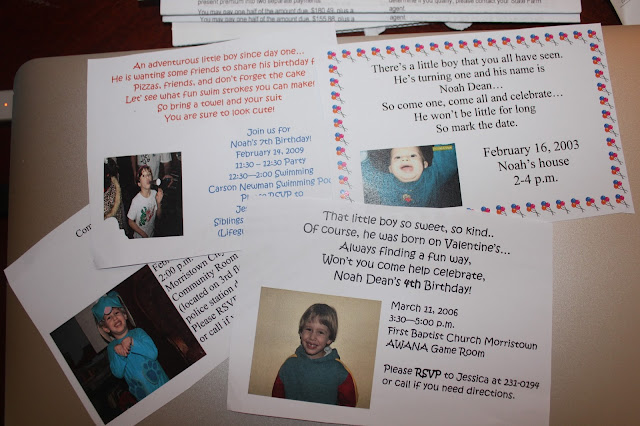 present premium into two separate payments.
You may pay one half of the amount due, $180.49, plus a
You may pay one half of the amount due, $155.88, plus a
determine if you qualify, please contact your State Farm
agent.
agent.
An adventurous little boy since day one...
He is wanting some friends to share his birthday f
Pizzas, friends, and don't forget the cake
Let' see what fun swim strokes you can make!
So bring a towel and your suit
You are sure to look cute!
Join us for
Noah's 7th Birthday!
February 14, 2009
11:30 – 12:30 Party
12:30—2:00 Swimming
Carson Newman Swimming Poo
Please RSVP to
Je
Siblings
(Lifeg
There's a little boy that you all have seen.
He's turning one and his name is
Noah Dean...
So come one, come all and celebrate...
He won't be little for long
So mark the date.
February 16, 2003
Noah's house
2-4 p.m.
Com
Feb
2:00 p.m.
Morristown City
Community Room
(located on 3rd f
police station
Please RSVP
or call if
That little boy so sweet, so kind..
Of course, he was born on Valentine's...
Always finding a fun way,
Won't you come help celebrate,
Noah Dean's 4th Birthday!
March 11, 2006
3:30—5:00 p.m.
First Baptist Church Morristown
AWANA Game Room
Please RSVP to Jessica at 231-0194
or call if you need directions.